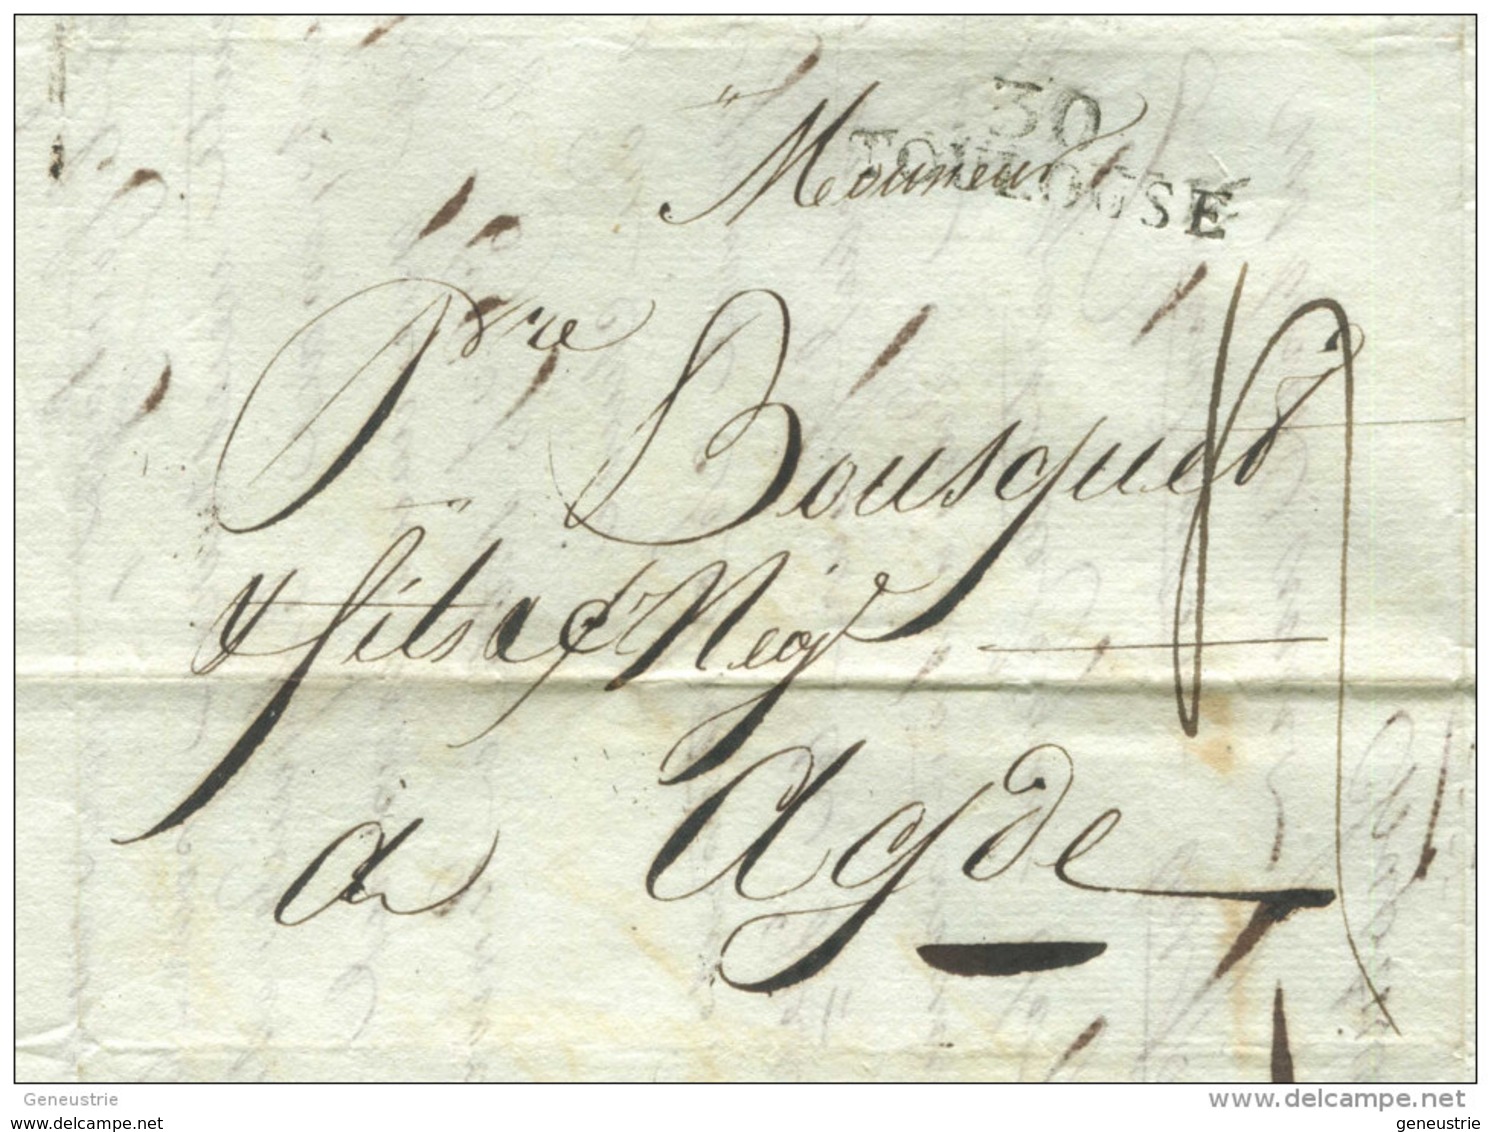 30
TOULOUSE
Monsieur
Pre Bousquet
& fils ac & Negt
à Agde
Geneustrie
www.delcampe.net
www.delcampe.net
geneustrie